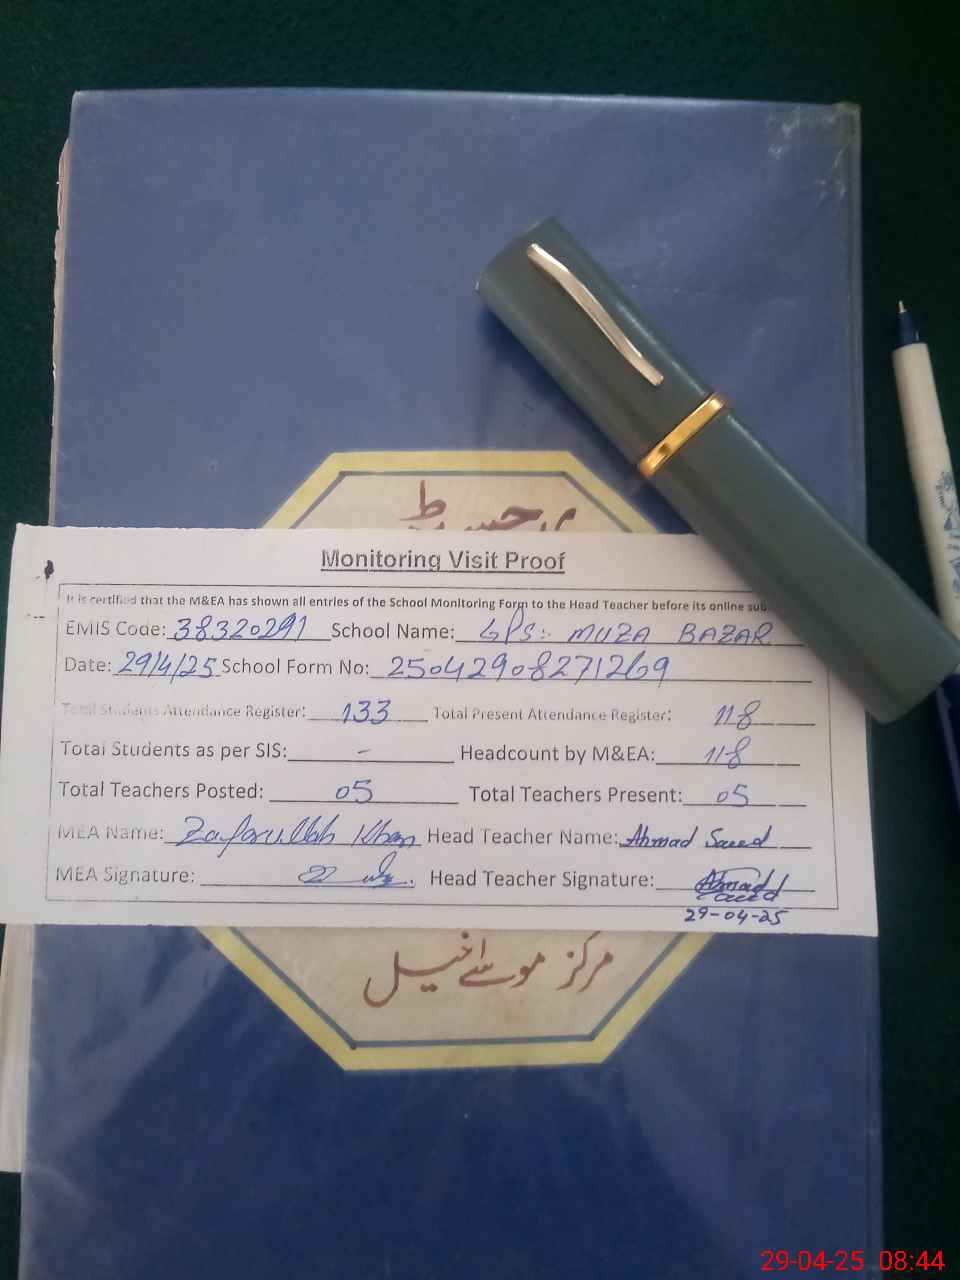 رجسٹر
Monitoring Visit Proof
It is certified that the M&EA has shown all entries of the School Monitoring Form to the Head Teacher before its online sub
EMIS Code: 38320291 School Name: GPS:- MUZA BAZAR
Date: 29/4/25 School Form No: 25042908271269
Total Students Attendance Register: 133 Total Present Attendance Register: 118
Total Students as per SIS: - Headcount by M&EA: 118
Total Teachers Posted: 05 Total Teachers Present: 05
MEA Name: Zafarullah Khan Head Teacher Name: Ahmad Saeed
MEA Signature: Head Teacher Signature: Ahmad
Saeed
29-04-25
مرکز موسےٰ خیل
29-04-25 08:44